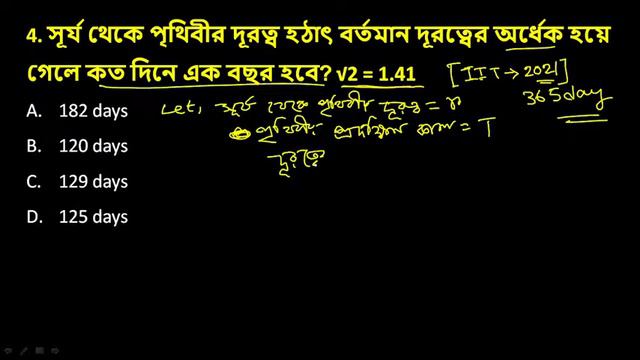 4. সূর্য থেকে পৃথিবীর দূরত্ব হঠাৎ বর্তমান দূরত্বের অর্ধেক হয়ে
গেলে কত দিনে এক বছর হবে? √2 = 1.41 [IIT → 2021]
365day
A. 182 days Let, সূর্য থেকে পৃথিবীর দূরত্ব = r
B. 120 days পৃথিবীর প্রদক্ষিণ কাল = T
দূরত্বে
C. 129 days
D. 125 days